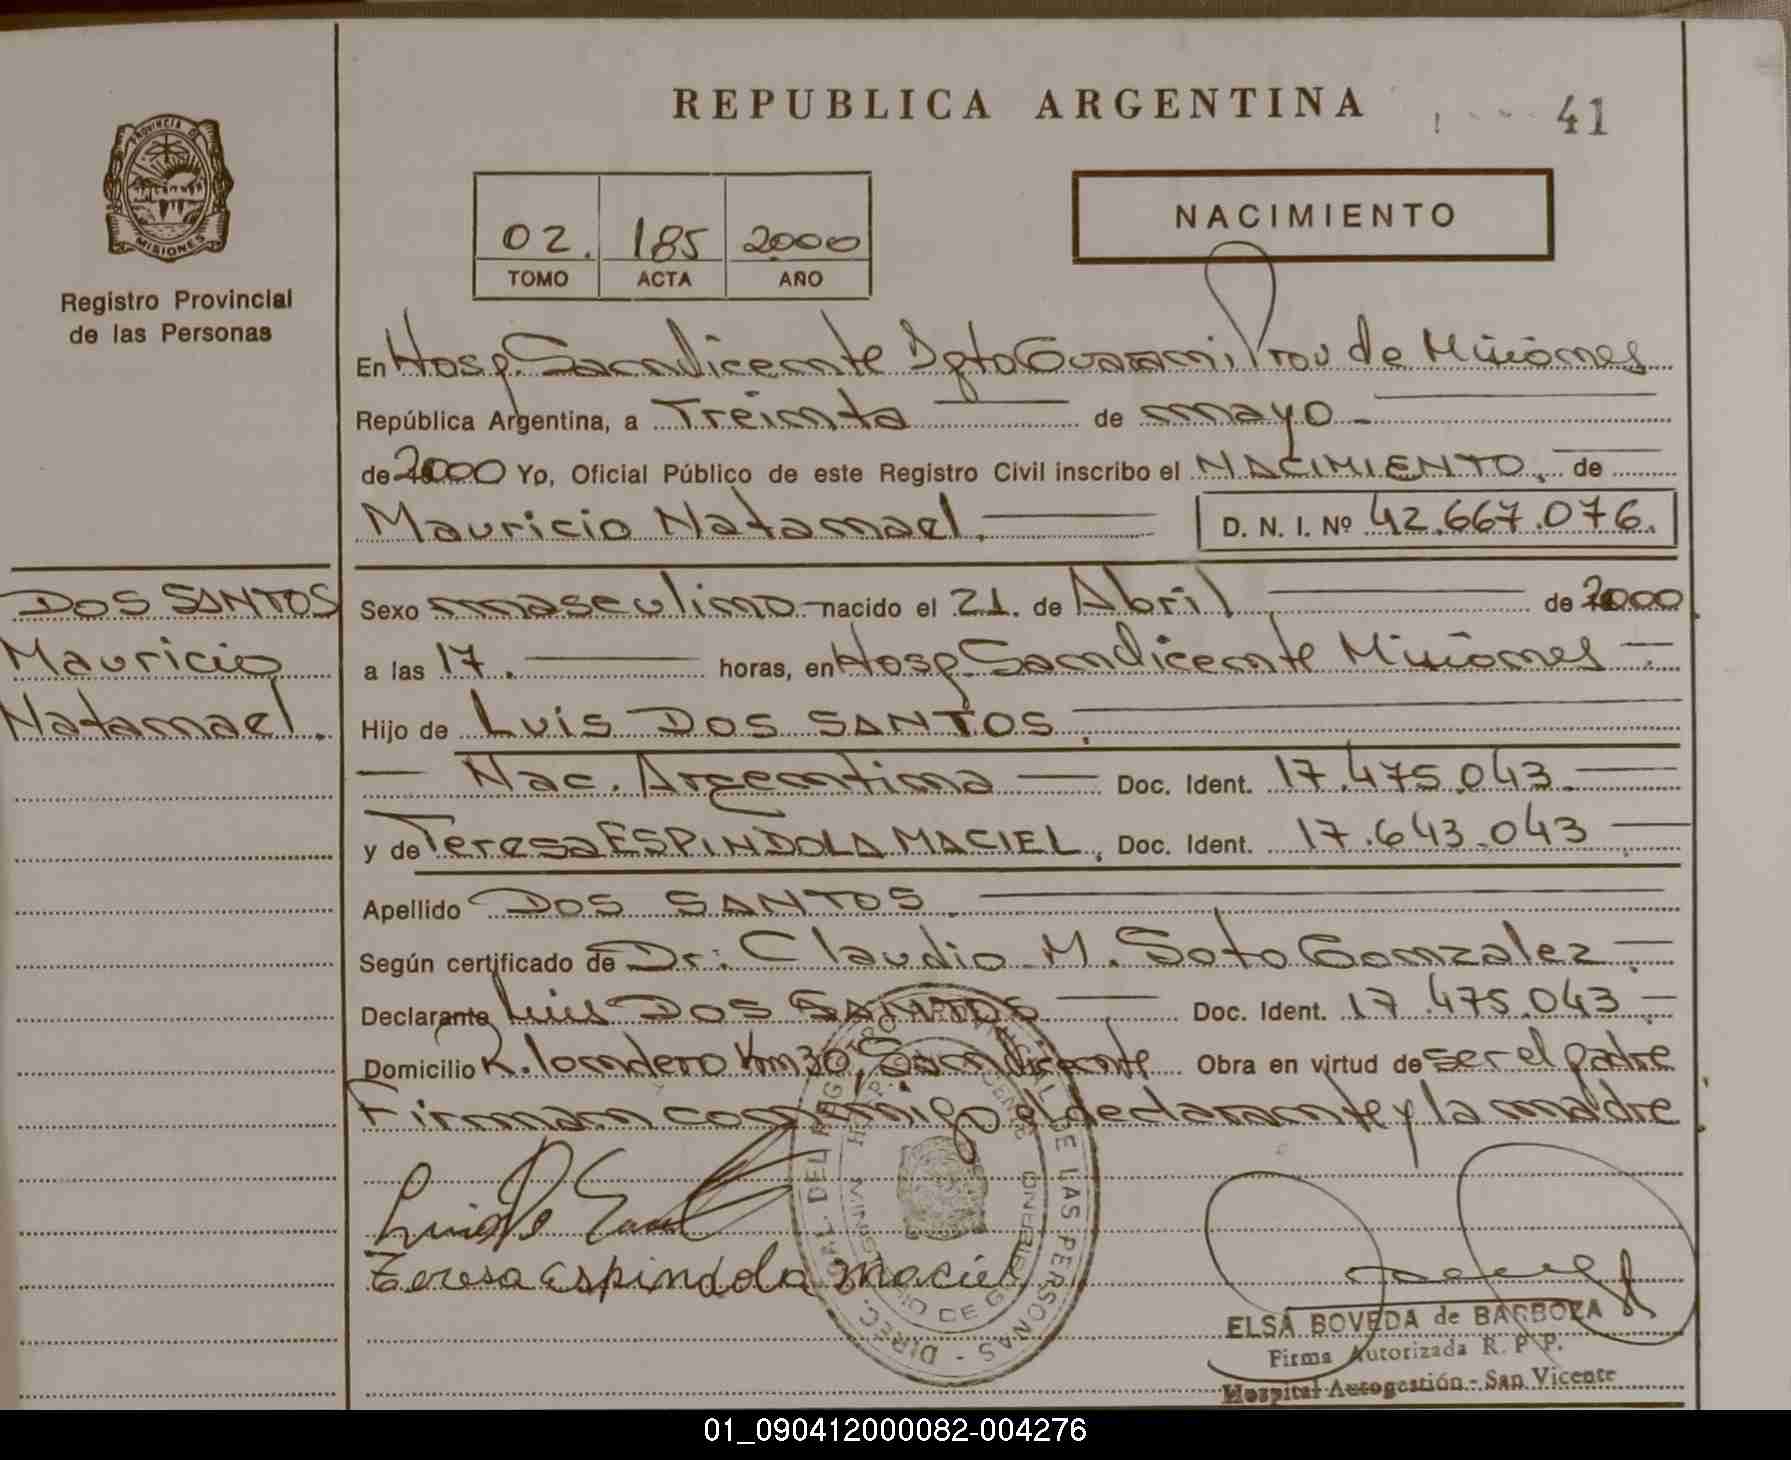 REPUBLICA ARGENTINA
41
PROVINCIA DE
MISIONES
Registro Provincial
de las Personas
02. 185 2000
TOMO ACTA AÑO
NACIMIENTO
En Hosp. San Vicente Dpto Guarani, Prov de Misiones
República Argentina, a Treinta de mayo
de 2000 Yo, Oficial Público de este Registro Civil inscribo el NACIMIENTO, de
Mauricio Natanael. D. N. I. Nº 42.667.076.
DOS SANTOS
Mauricio
Natanael.
Sexo masculino nacido el 21. de Abril de 2000
a las 17. horas, en Hosp. San Vicente Misiones
Hijo de Luis DOS SANTOS.
Nac. Argentina Doc. Ident. 17.475.043.
y de Teresa ESPINDOLA MACIEL, Doc. Ident. 17.643.043
Apellido DOS SANTOS.
Según certificado de Dr: Claudio M. Soto Gonzalez
Declarante Luis DOS SANTOS Doc. Ident. 17.475.043
Domicilio R. londero Km 30, San Vicente Obra en virtud de ser el padre
Firman conmigo el declarante y la madre
Teresa Espindola Maciel
DIREC. GRAL. DEL REGISTRO PROVINCIAL DE LAS PERSONAS
MINISTERIO DE GOBIERNO
ELSA BOVEDA de BARBOZA
Firma Autorizada R. P. P.
Hospital Autogestión - San Vicente
01_090412000082-004276